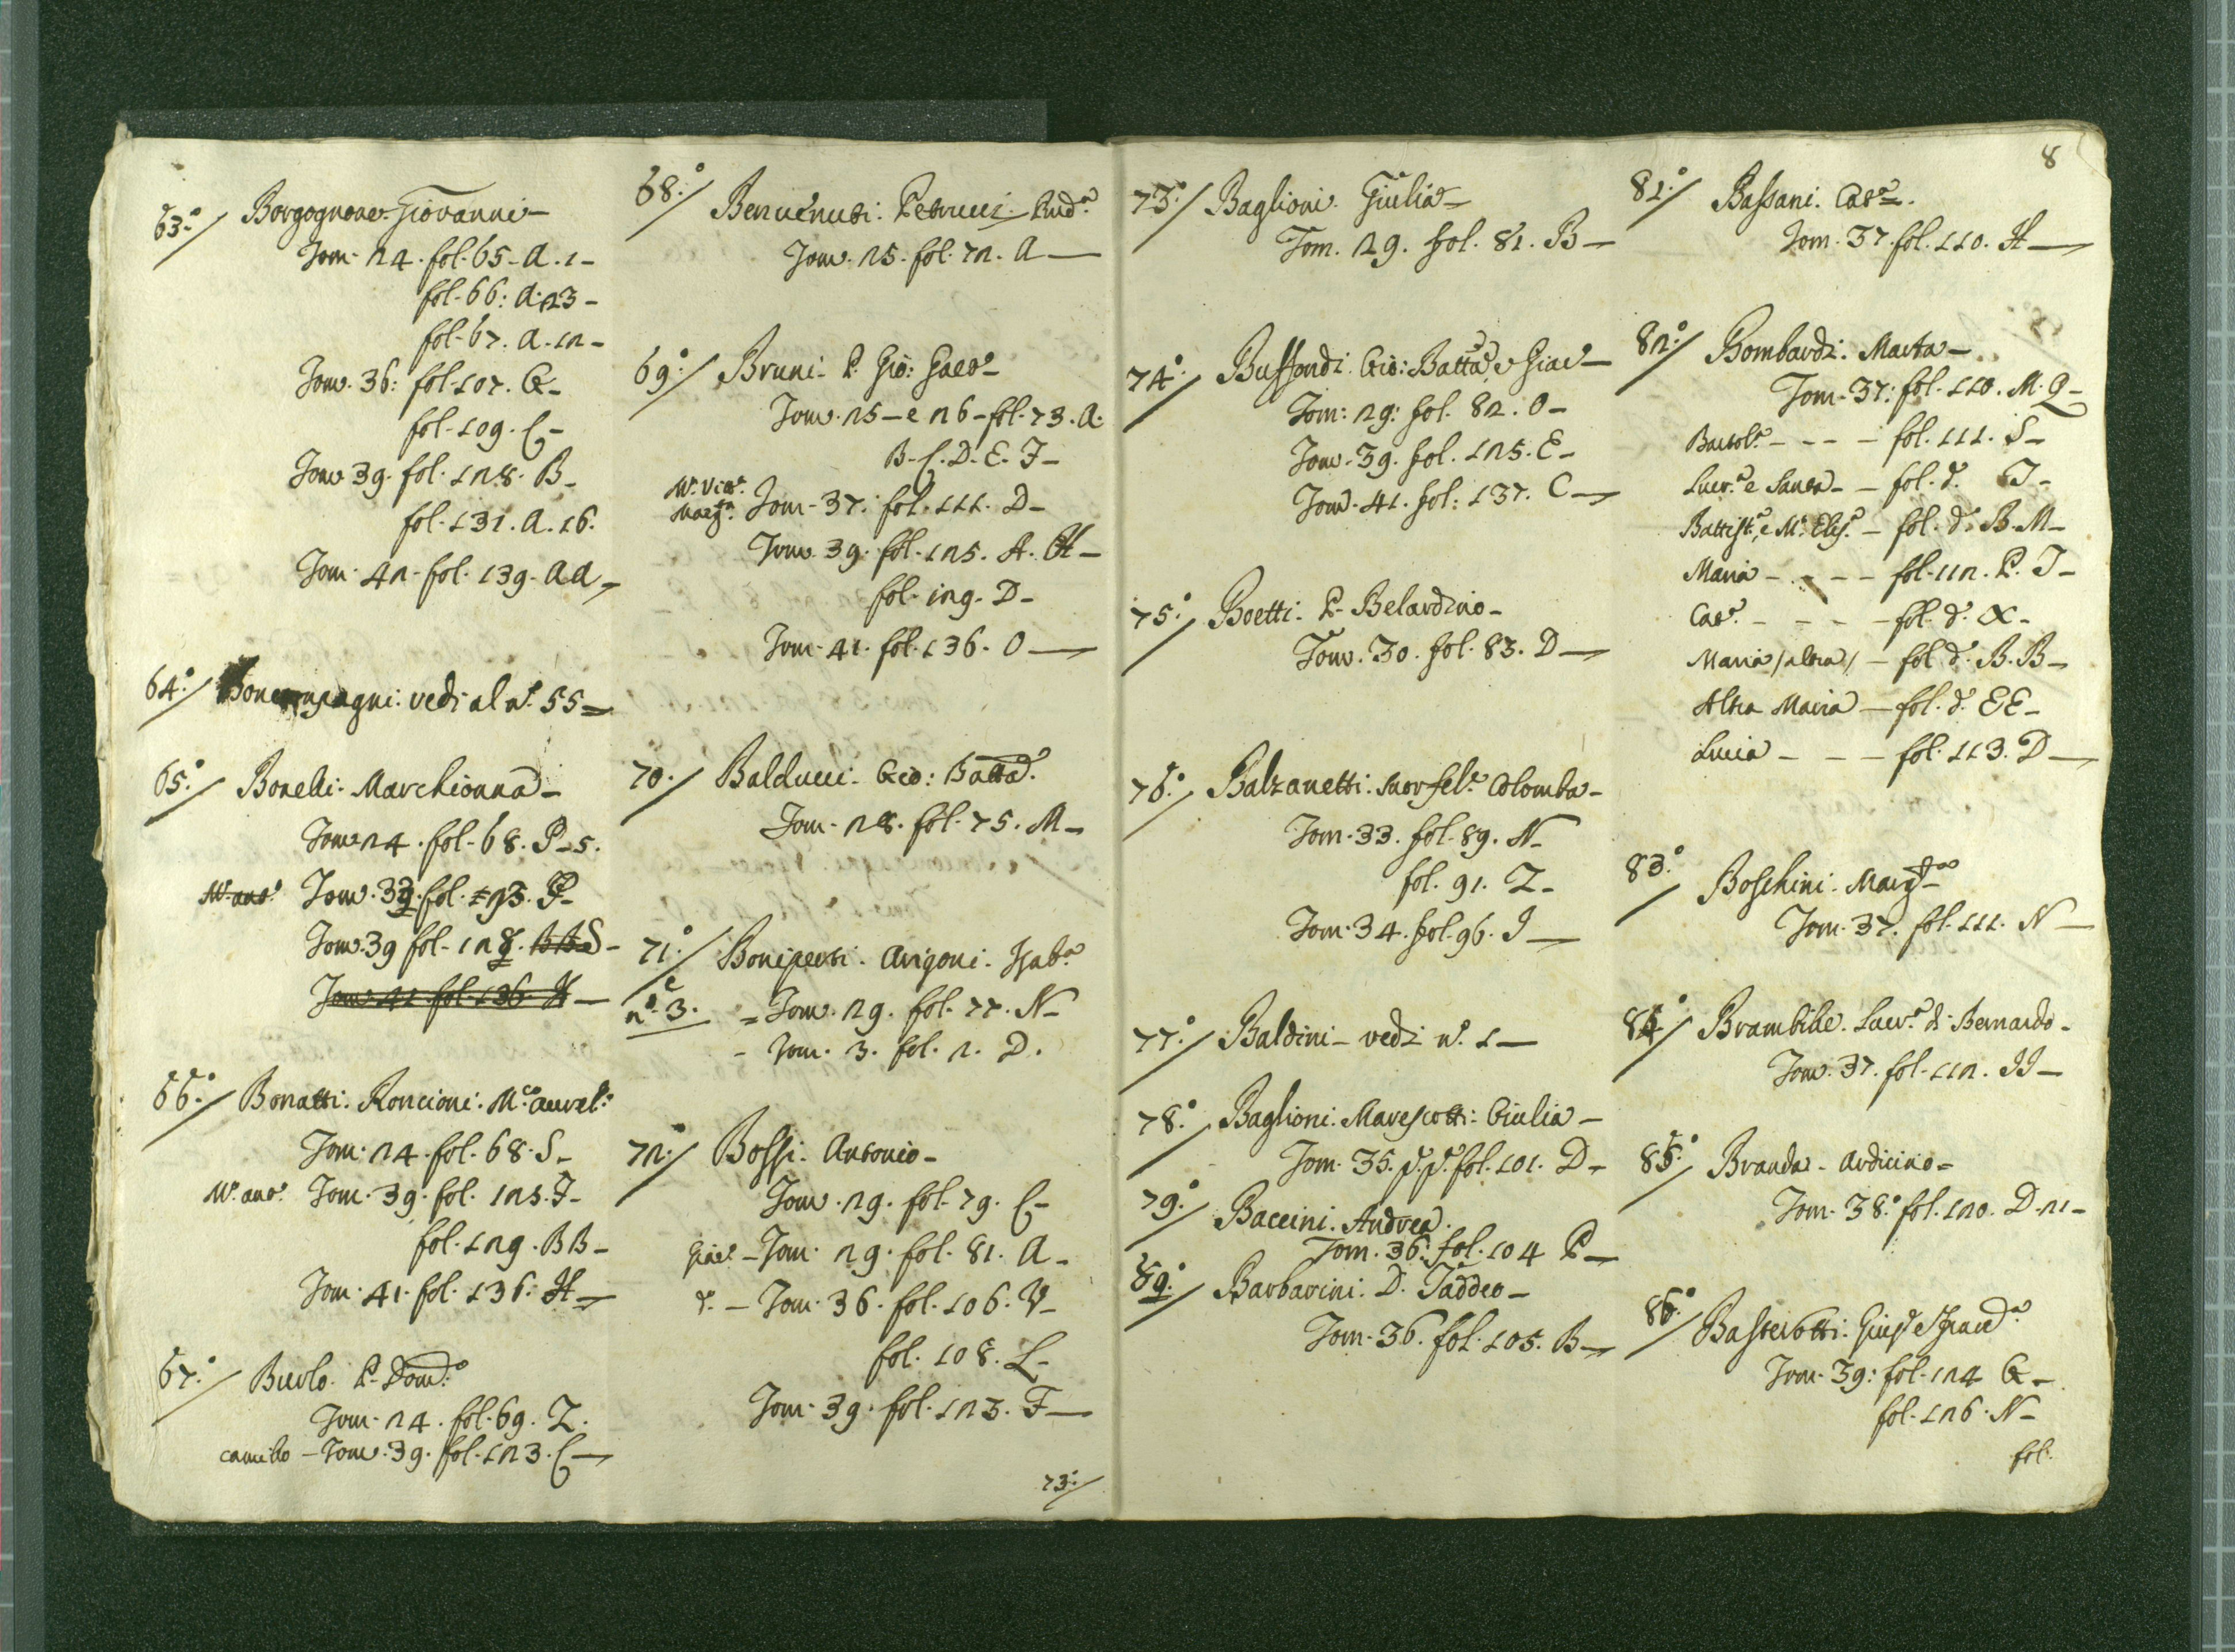 63.°/ Borgognone Giovanni -
Tom. 24. fol. 65. A. 1 -
fol. 66: A. 23 -
fol. 67. A. 12 -
Tom. 36: fol. 107. G -
fol. 109. C -
Tom. 39. fol. 128. B -
fol. 131. A. 16.
Tom. 42. fol. 139. AA -
64.°/ Boncompagni: vedi al n.° 55 =
65.°/ Bonelli. Marchionna -
Tom. 24. fol. 68. P. 5.
fol. 93. P -
Tom. 39 fol. 129.
Tom. 41. fol. 136. H -
66.°/ Bonatti. Roncioni. M.a Aurel.a
Tom. 24. fol. 68. S -
M.a ant.a Tom. 39. fol. 125. I -
fol. 129. BB -
Tom. 41. fol. 136. H -
67.°/ P. Dom.co
Tom. 24. fol. 69. Z.
camillo - Tom. 39. fol. 123. C -
68.°/ Benvenuti. Petrucci. Lud.a
Tom. 25. fol. 72. A -
69.°/ Bruni. P. Gio: Gaet.o -
Tom. 25 - e 26 - fol. 73. A.
B. C. D. E. F -
M.a Vitt.a
Marg.ta Tom. 37. fol. 111. D -
Tom. 39. fol. 125. A. H -
fol. 129. D -
Tom. 41. fol. 136. O -
70./ Balducci. Gio: Batta.
Tom. 28. fol. 75. M -
71.°/ Boniperti. Arigoni. Isab.a
e
n.° 3. = Tom. 29. fol. 77. N -
- Tom. 3. fol. 2. D.
72./ Bossi. Antonio -
Tom. 29. fol. 79. C -
Giac.o - Tom. 29. fol. 81. A -
d.o - Tom. 36. fol. 106. V -
fol. 108. L -
Tom. 39. fol. 123. F -
73./
8
73.°/ Baglioni. Giulia -
Tom. 29. fol. 81. B -
74.°/ Buffondi. Gio: Batta, e Giac.o -
Tom: 29: fol. 82. O -
Tom. 39. fol. 125. E -
Tom. 41. fol: 137. C -
75.°/ Boetti. P. Belardino -
Tom. 30. fol. 83. D -
76.°/ Balzanetti. Suor Fel.e Colomba -
Tom. 33. fol. 89. N -
fol. 91. Z -
Tom. 34. fol. 96. I -
77.°/ Baldini - vedi n.° 1 -
78.°/ Baglioni. Marescotti: Giulia -
Tom. 35. p.o p.o fol. 101. D -
79.°/ Baccini. Andrea.
Tom. 36. fol. 104 P -
80.°/ Barbarini. D. Taddeo -
Tom. 36. fol. 105. B -
81.°/ Bassani. Cat.a.
Tom. 37. fol. 110. H -
82.°/ Bombardi. Marta -
Tom. 37: fol. 110. M. Q -
Bartol.a - - - - fol. 111. S -
Lucr.a e Santa - - fol. d.o T -
Battist.a, e M.a Elis.a - fol. d.o B. M -
Maria - - - - fol. 112. P. I -
Cat.a - - - - fol. d.o X -
Maria /altra/ - fol. d.o B. B -
Altra Maria - fol. d.o EE -
Lucia - - - fol. 113. D -
83.°/ Boschini. Marg.ta
Tom. 37. fol. 111. N -
84.°/ Brambille. Lucr.a di Bernardo -
Tom. 37. fol. 112. II -
85.°/ Branda - Ardicino -
Tom. 38. fol. 120. D. 21 -
86.°/ Basterotti. Gius.e e Fran.ca
Tom. 39: fol. 124 G -
fol. 126. N -
fol.